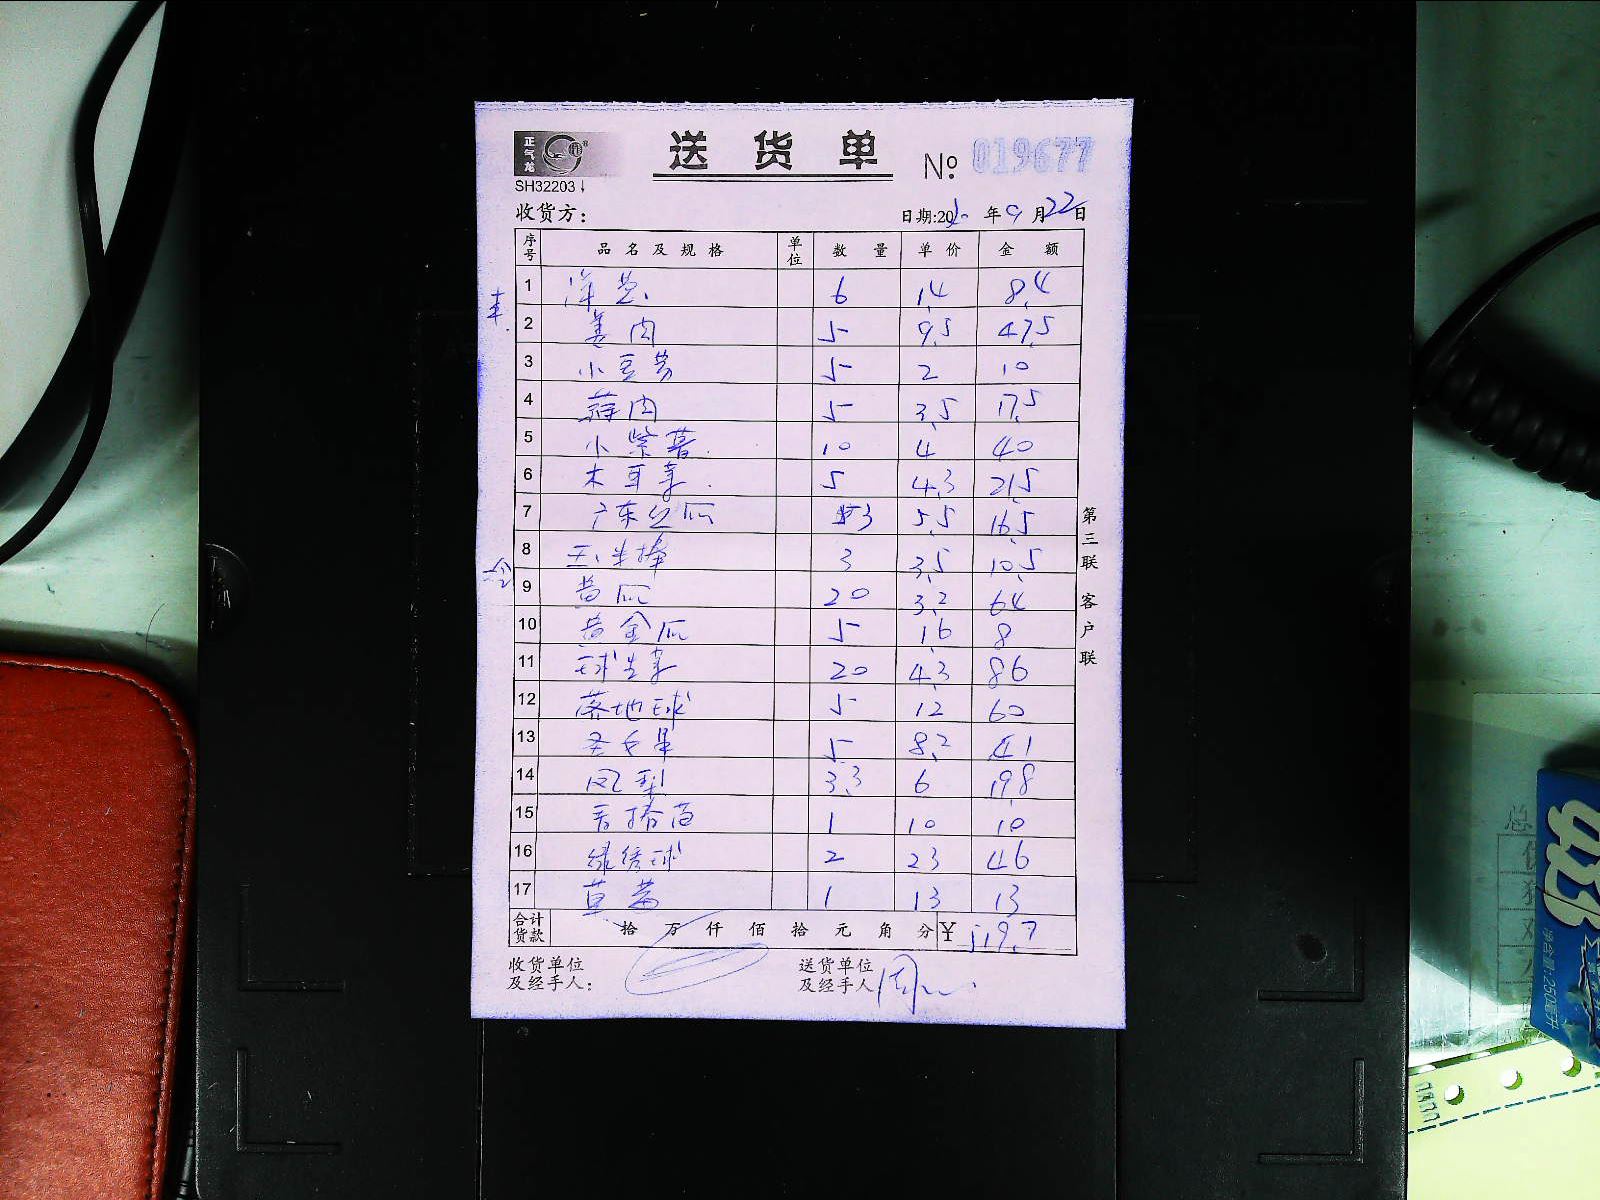 正气龙
送货单
SH32203
№ 019677
收货方：
日期:20 年9月22日
序号 品名及规格 单位 数量 单价 金额
1 洋葱 6 1.4 8.4
2 姜肉 5 9.5 47.5
3 小豆芽 5 2 10
4 蒜肉 5 3.5 17.5
5 小紫薯 10 4 40
6 木耳菜 5 4.3 21.5
7 广东丝瓜 3 5.5 16.5
8 玉米棒 3 3.5 10.5
9 黄瓜 20 3.2 64
10 黄金瓜 5 1.6 8
11 球生菜 20 4.3 86
12 落地球 5 12 60
13 圣女果 5 8.2 41
14 凤梨 3.3 6 19.8
15 1 10 10
16 绿绣球 2 23 46
17 草莓 1 13 13
合计货款 拾 万 仟 佰 拾 元 角 分 ¥ 519.7
收货单位及经手人：
送货单位及经手人 周
第三联 客户联
净含量:250毫升
总